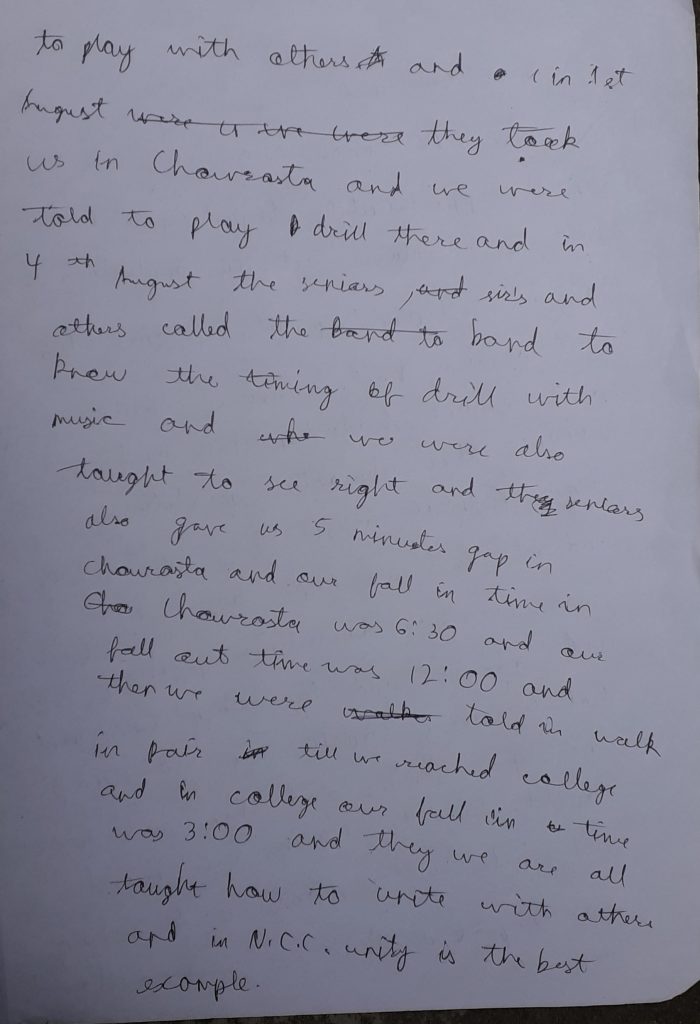 to play with others and (in 1st
August were u the were they took
us in Chowrasta and we were
told to play drill there and in
4th August the seniors, and sir's and
others called the band to band to
know the timing of drill with
music and who we were also
taught to see right and they seniors
also gave us 5 minutes gap in
chowrasta and our fall in time in
Cho Chowrasta was 6:30 and our
fall out time was 12:00 and
then we were walke told in walk
in pair in till we reached college
and in college our fall in time
was 3:00 and they we are all
taught how to unite with others
and in N.C.C. unity is the best
example.